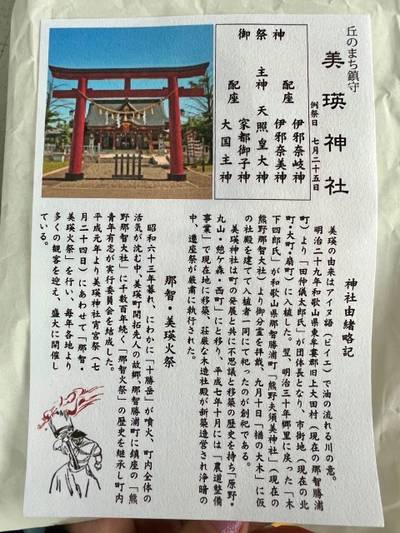 丘のまち鎮守
美瑛神社
例祭日　七月二十五日
御祭神
配座　伊邪奈岐神
伊邪奈美神
主神　天照皇大神
配座　家都御子神
大国主神
神社由緒略記
美瑛の由来はアイヌ語（ピイエ）で油の流れる川の意。
明治二十九年和歌山県東牟婁郡上太田村（現在の那智勝浦
町）より「田仲儀太郎氏」が団体長となり、市街地（現在の北
町・大町・扇町）に入植した。翌、明治三十年郷里に戻った「木
下四郎氏」が和歌山県那智勝浦町「熊野夫須美神社」（現在の
熊野那智大社）より御分霊を拝戴、九月十日「楢の大木」に仮
の社殿を建てて入植者一同にて祀ったのが創祀である。
美瑛神社は町の発展と共に不思議と移築の歴史を持ち「原野・
丸山・憩ケ森・西町」にと移り、平成七年十月には「農道整備
事業」で現在地に移築、荘厳な木造社殿が新築造営され浄暗の
中、遷座祭が厳粛に執行された。
那智・美瑛火祭
昭和六十三年暮れ、にわかに「十勝岳」が噴火、町内全体の
活気が沈む中、美瑛町開拓先人の故郷、那智勝浦町に鎮座の「熊
野那智大社」に千数百年続く「那智火祭」の歴史を継承し町内
青年有志が実行委員会を結成した。
平成元年より美瑛神社宵宮祭（七
月二十四日）にあわせて「那智・
美瑛火祭」を行い、毎年各地より
多くの観客を迎え、盛大に開催し
ている。